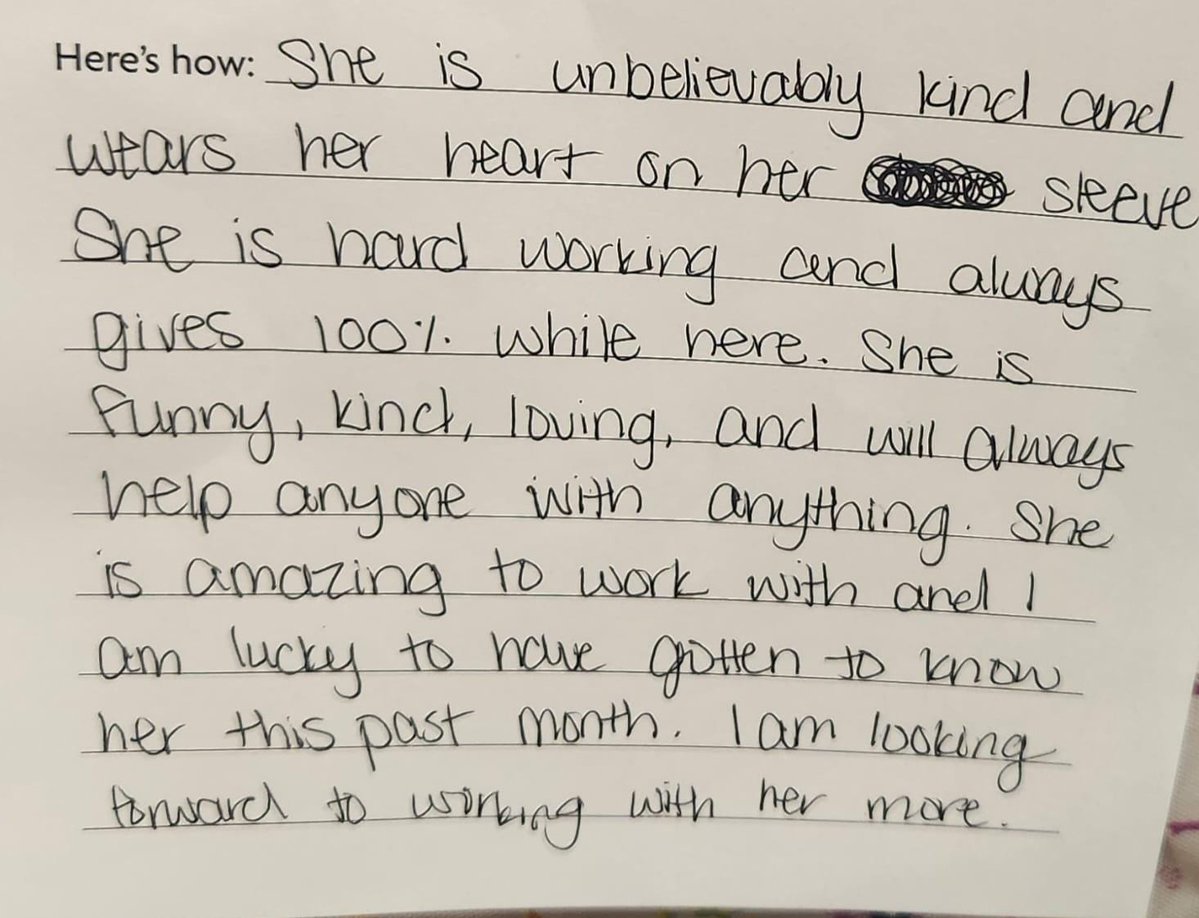 Here's how: She is unbelievably kind and
wears her heart on her sleeve
She is hard working and always
gives 100% while here. She is
funny, kind, loving, and will always
help anyone with anything. She
is amazing to work with and I
am lucky to have gotten to know
her this past month. I am looking
forward to working with her more.